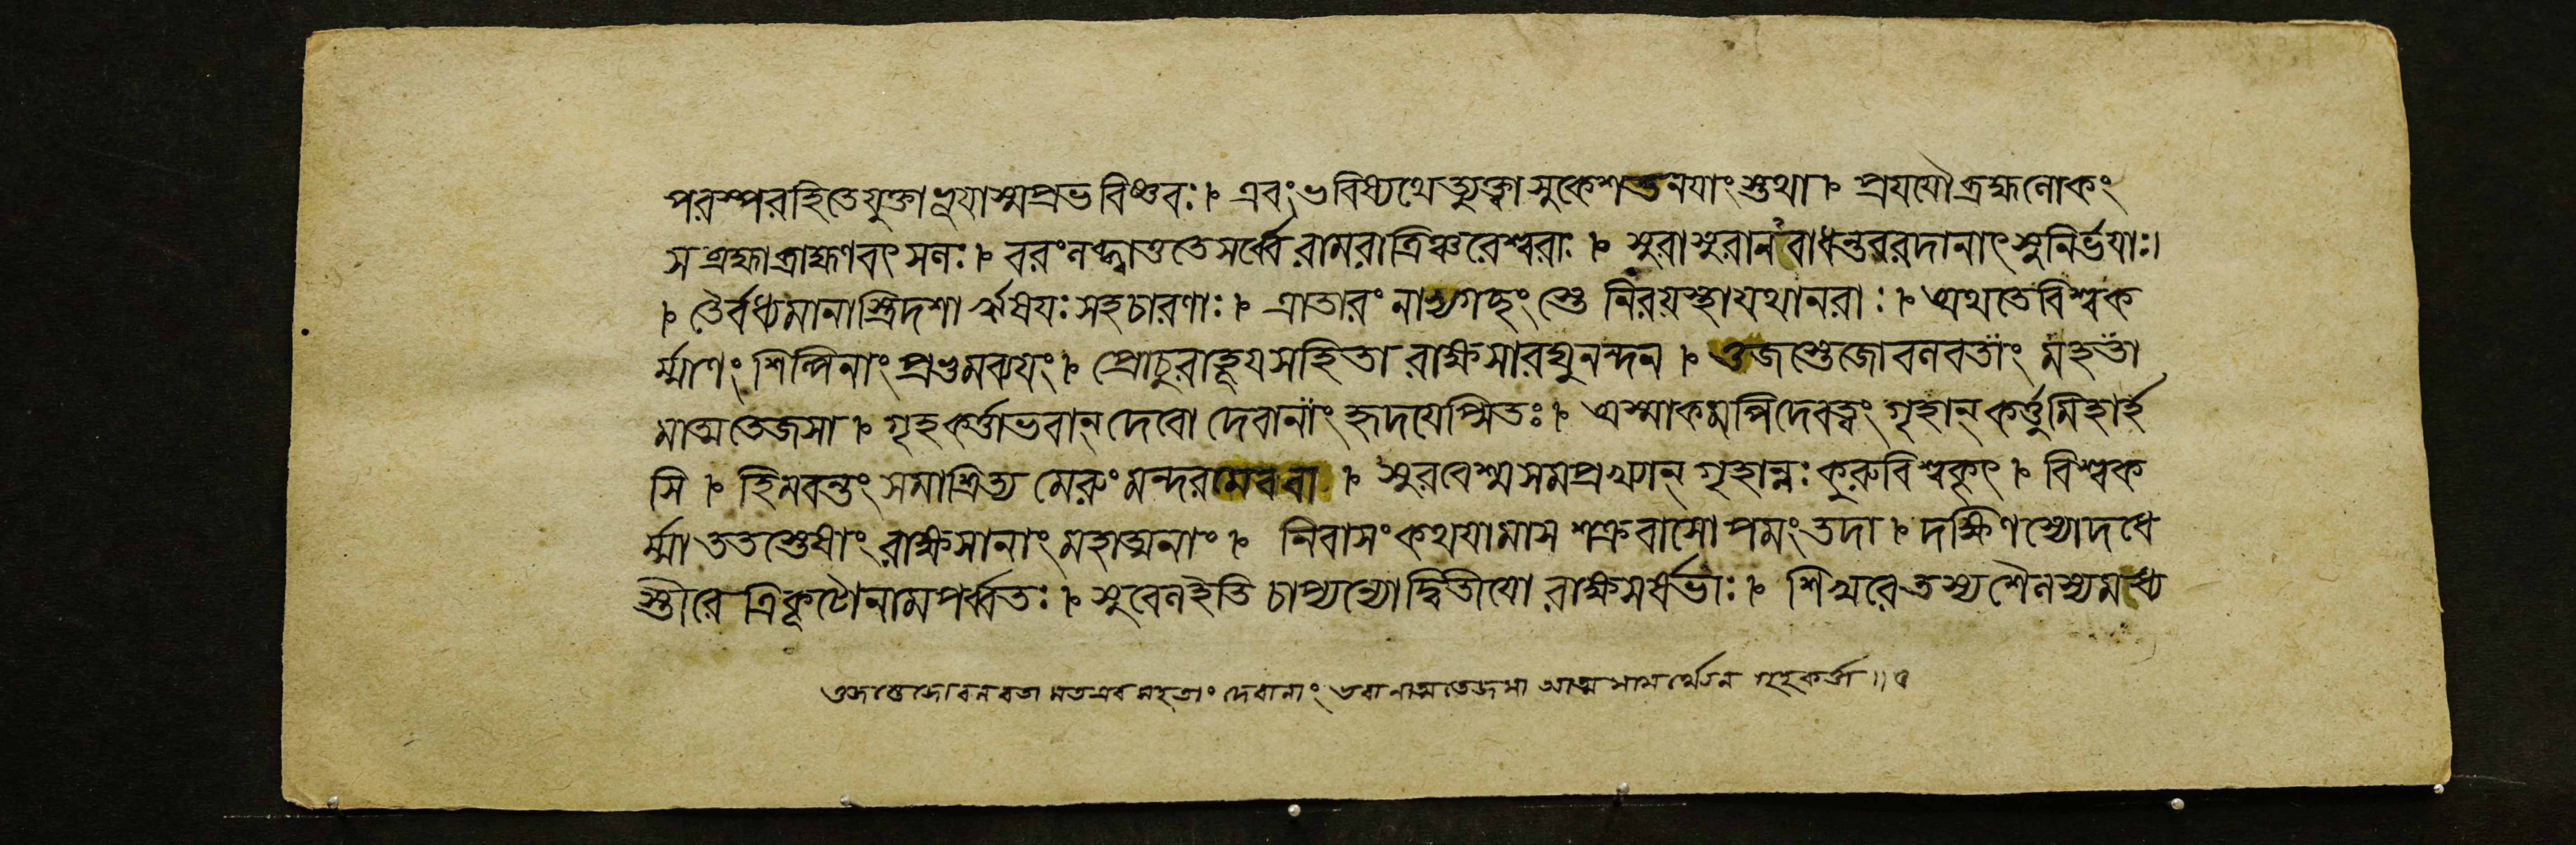 পরস্পরহিতেযুক্তাভূযাস্মপ্রভবিষ্ণবঃ। এবংভবিষ্যথেত্যুক্ত্বাসুকেশতনযাংস্তথা। প্রযযৌব্রহ্মলোকং
সব্রহ্মাব্রাহ্মণবৎসলঃ। বরংলব্ধ্বাততেসর্ব্বেরামরাত্রিঞ্চরেশ্বরাঃ। সুরাসুরানংবাধন্তবরদানাৎসুনির্ভযাঃ।
। তৈর্বধ্যমানাস্ত্রিদশাঋষযঃসহচারণাঃ। ত্রাতারংনাধ্যগচ্ছংস্তেনিরয়স্থাযথানরাঃ। অথতেবিশ্বক
র্ম্মাণংশিল্পিনাংপ্রণ্ডমব্যযং। প্রোচুরাহূযসহিতারাক্ষসারঘুনন্দন। ওজস্তেজোবলবতাং মহতা
মাত্মতেজসা। গৃহকর্ত্তাভবান্ দেবো দেবানাং হৃদযেপ্সিতঃ। অস্মাকমপিদেবত্বং গৃহান্ কর্ত্তুমিহার্হ
সি। হিমবন্তং সমাশ্রিত্য মেরুংমন্দরমেববা। সুরবেশ্মসমপ্রখ্যান্ গৃহান্নঃকুরুবিশ্বকৃৎ। বিশ্বক
র্ম্মাততস্তেষাং রাক্ষসানাংমহাত্মনাং। নিবাসংকথযামাসশক্রবাসোপমংতদা। দক্ষিণস্যোদধে
স্তীরে ত্রিকূটোনামপর্ব্বতঃ। সুবেলইতি চাপ্যন্যোদ্বিতীযো রাক্ষসর্ষভাঃ। শিখরেতস্যশৈলস্যমধ্য
ওজস্তেজোবলবতামতএবমহতাং দেবানাং ভবানাত্মতেজসা আত্মসামর্থ্যেন গৃহকর্ত্তা॥৫